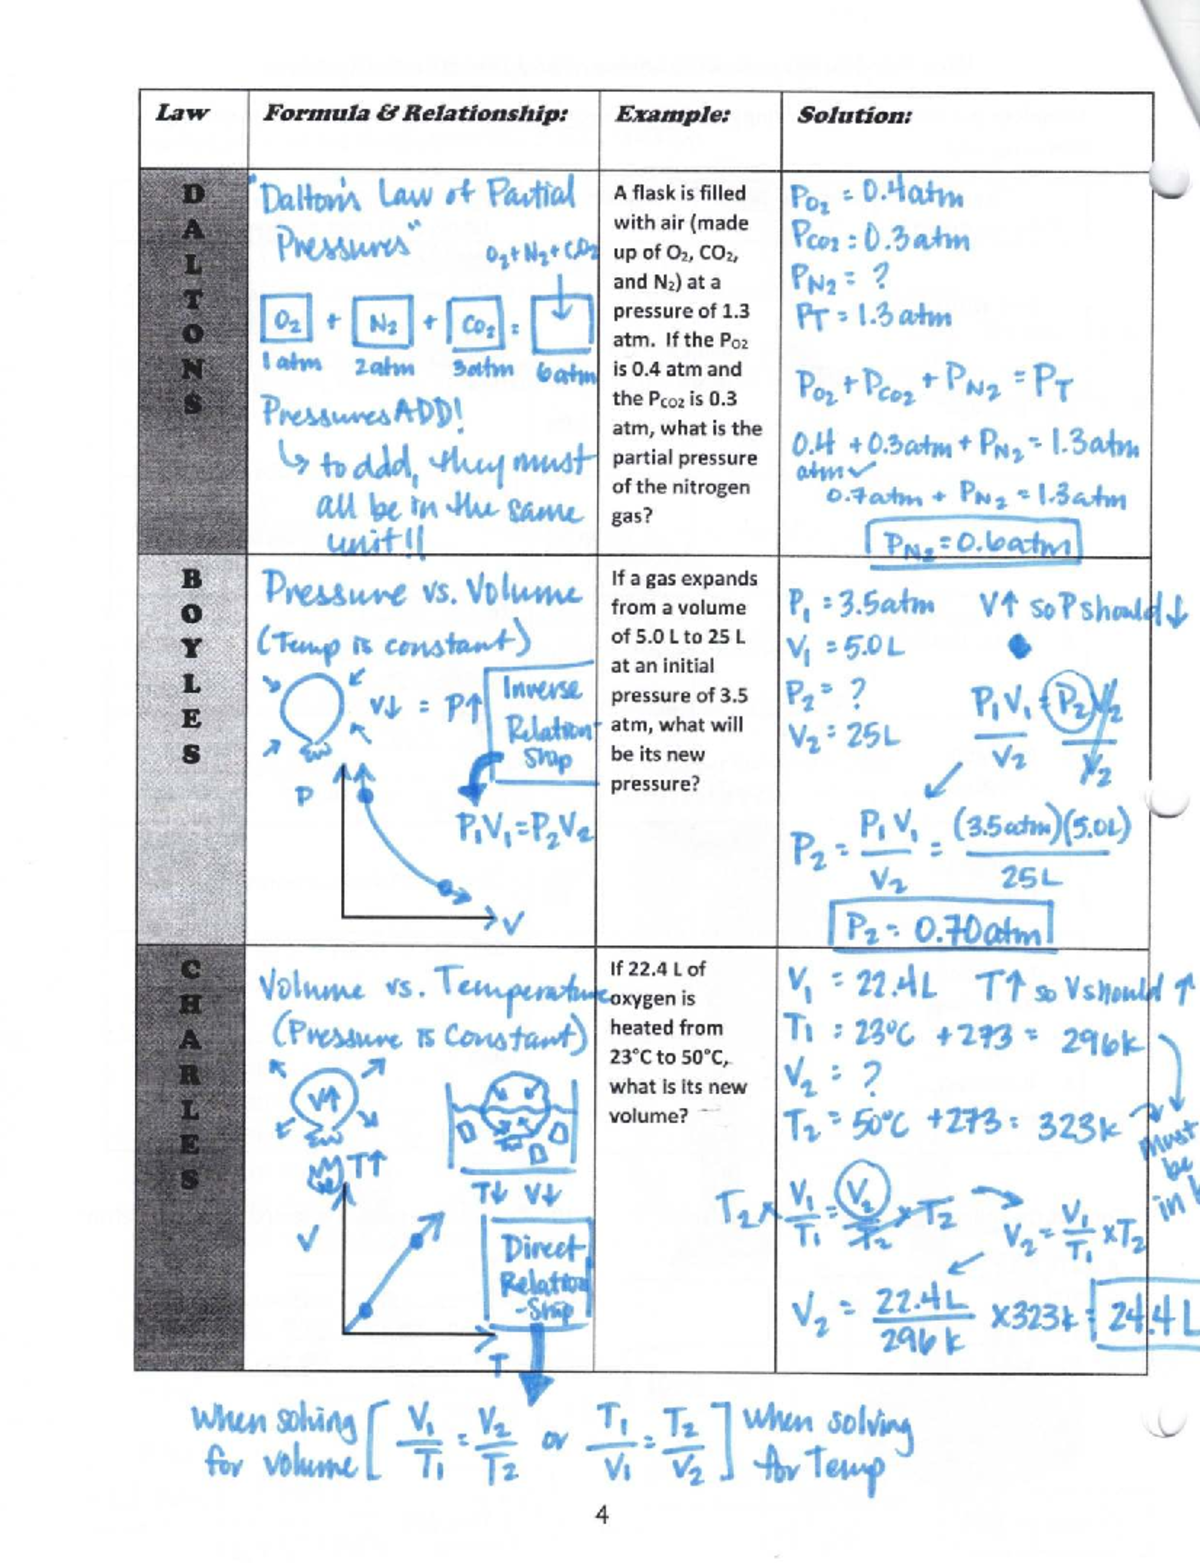 Law
Formula & Relationship:
Example:
Solution:
DALTONS
"Dalton's Law of Partial
Pressures"
O₂+N₂+CO₂
O₂ + N₂ + CO₂ =
1atm 2atm 3atm 6atm
Pressures ADD!
↳ to add, they must
all be in the same
unit!!
A flask is filled
with air (made
up of O₂, CO₂,
and N₂) at a
pressure of 1.3
atm. If the PO2
is 0.4 atm and
the PCO2 is 0.3
atm, what is the
partial pressure
of the nitrogen
gas?
PO₂ = 0.4atm
PCO₂ = 0.3atm
PN₂ = ?
PT = 1.3atm
PO₂ + PCO₂ + PN₂ = PT
0.4 + 0.3atm + PN₂ = 1.3atm
atm
0.7atm + PN₂ = 1.3atm
PN₂ = 0.6atm
BOYLES
Pressure vs. Volume
(Temp is constant)
V↓ = P↑
Inverse
Relation-
Ship
P
P₁V₁=P₂V₂
V
If a gas expands
from a volume
of 5.0 L to 25 L
at an initial
pressure of 3.5
atm, what will
be its new
pressure?
P₁ = 3.5atm V↑ so P should ↓
V₁ = 5.0L
P₂ = ?
V₂ = 25L
P₁V₁ = P₂V₂
V₂ V₂
P₂ = P₁V₁ = (3.5atm)(5.0L)
V₂ 25L
P₂ = 0.70atm
CHARLES
Volume vs. Temperature
(Pressure is Constant)
V↑
T↑
T↓ V↓
V
Direct
Relation
-Ship
T
If 22.4 L of
oxygen is
heated from
23°C to 50°C,
what is its new
volume?
V₁ = 22.4L T↑ so V should ↑
T₁ = 23°C + 273 = 296k
V₂ = ?
T₂ = 50°C + 273 = 323k
Must
be
in
T₂ x V₁ = V₂ x T₂
T₁ T₂
V₂ = V₁ x T₂
T₁
V₂ = 22.4L x 323k = 24.4L
296k
When solving for volume [ V₁/T₁ = V₂/T₂ or T₁/V₁ = T₂/V₂ ] when solving for Temp
4